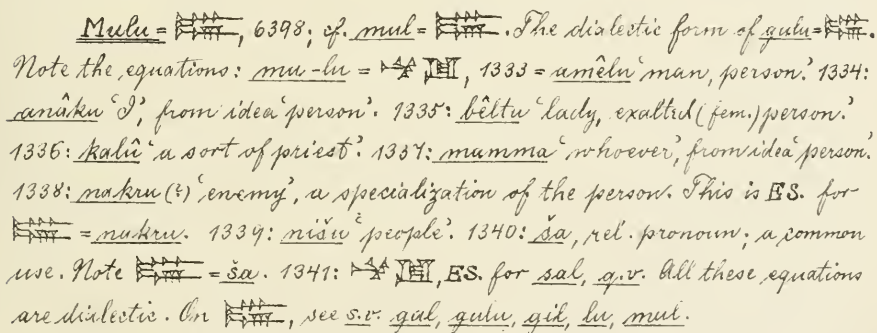 Mulu = 𒇽, 6398; cf. mul = 𒇽. The dialectic form of gulu = 𒇽.
Note the equations: mu-lu = 𒈬 𒇻, 1333 = amêlu ‘man, person.’ 1334:
anâku ‘I’, from idea ‘person’. 1335: bêltu ‘lady, exalted (fem.) person.’
1336: kalû ‘a sort of priest’. 1337: mamma ‘whoever’, from idea ‘person’.
1338: nakru (?) ‘enemy’, a specialization of the person. This is ES. for
𒇽 = nakru. 1339: nišu ‘people’. 1340: ša, rel. pronoun; a common
use. Note 𒇽 = ša. 1341: 𒈬 𒇻, ES. for sal, q.v. All these equations
are dialectic. On 𒇽, see s.v. gal, gulu, gil, lu, mul.